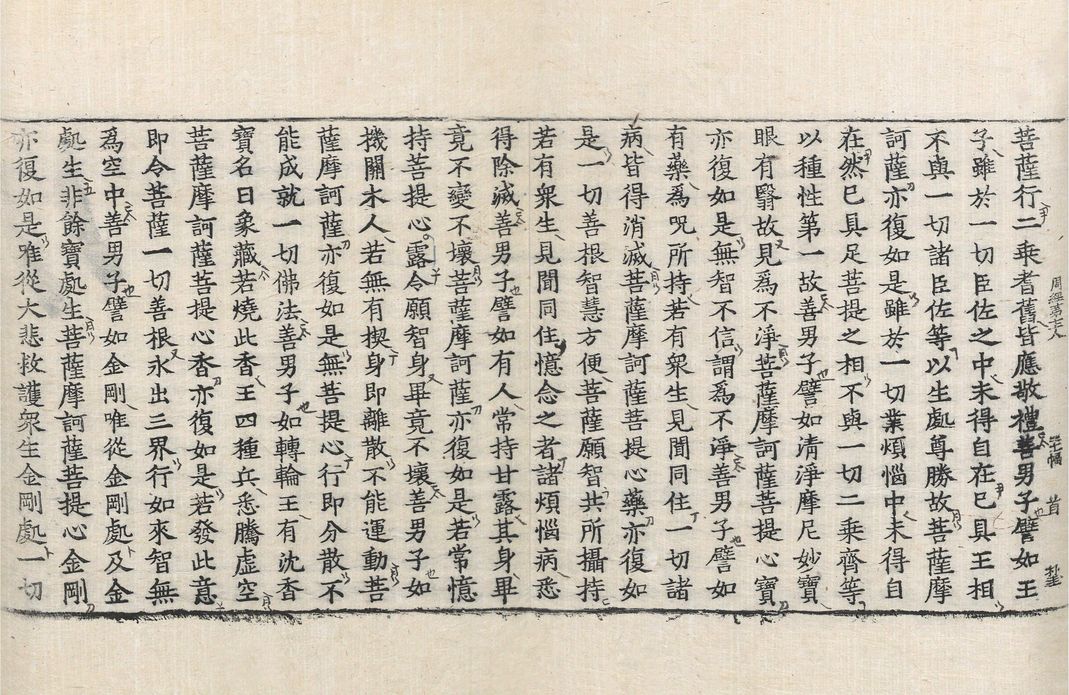 菩薩行二乘耆舊皆應敬禮善男子譬如王
子雖於一切臣佐之中未得自在已具王相
不與一切諸臣佐等以生處尊勝故菩薩摩
訶薩亦復如是雖於一切業煩惱中未得自
在然已具足菩提之相不與一切二乘齊等
以種性第一故善男子譬如清淨摩尼妙寶
眼有翳故見為不淨菩薩摩訶薩菩提心寶
亦復如是無智不信謂為不淨善男子譬如
有藥為咒所持若有衆生見聞同住一切諸
病皆得消滅菩薩摩訶薩菩提心藥亦復如
是一切善根智慧方便菩薩願智共所攝持
若有衆生見聞同住憶念之者諸煩惱病悉
得除滅善男子譬如有人常持甘露其身畢
竟不變不壞菩薩摩訶薩亦復如是若常憶
持菩提心露令願智身畢竟不壞善男子如
機關木人若無有楔身即離散不能運動菩
薩摩訶薩亦復如是無菩提心行即分散不
能成就一切佛法善男子如轉輪王有沈香
寶名曰象藏若燒此香王四種兵悉騰虛空
菩薩摩訶薩菩提心香亦復如是若發此意
即令菩薩一切善根永出三界行如來智無
為空中善男子譬如金剛唯從金剛處及金
處生非餘寶處生菩薩摩訶薩菩提心金剛
亦復如是唯從大悲救護衆生金剛處一切